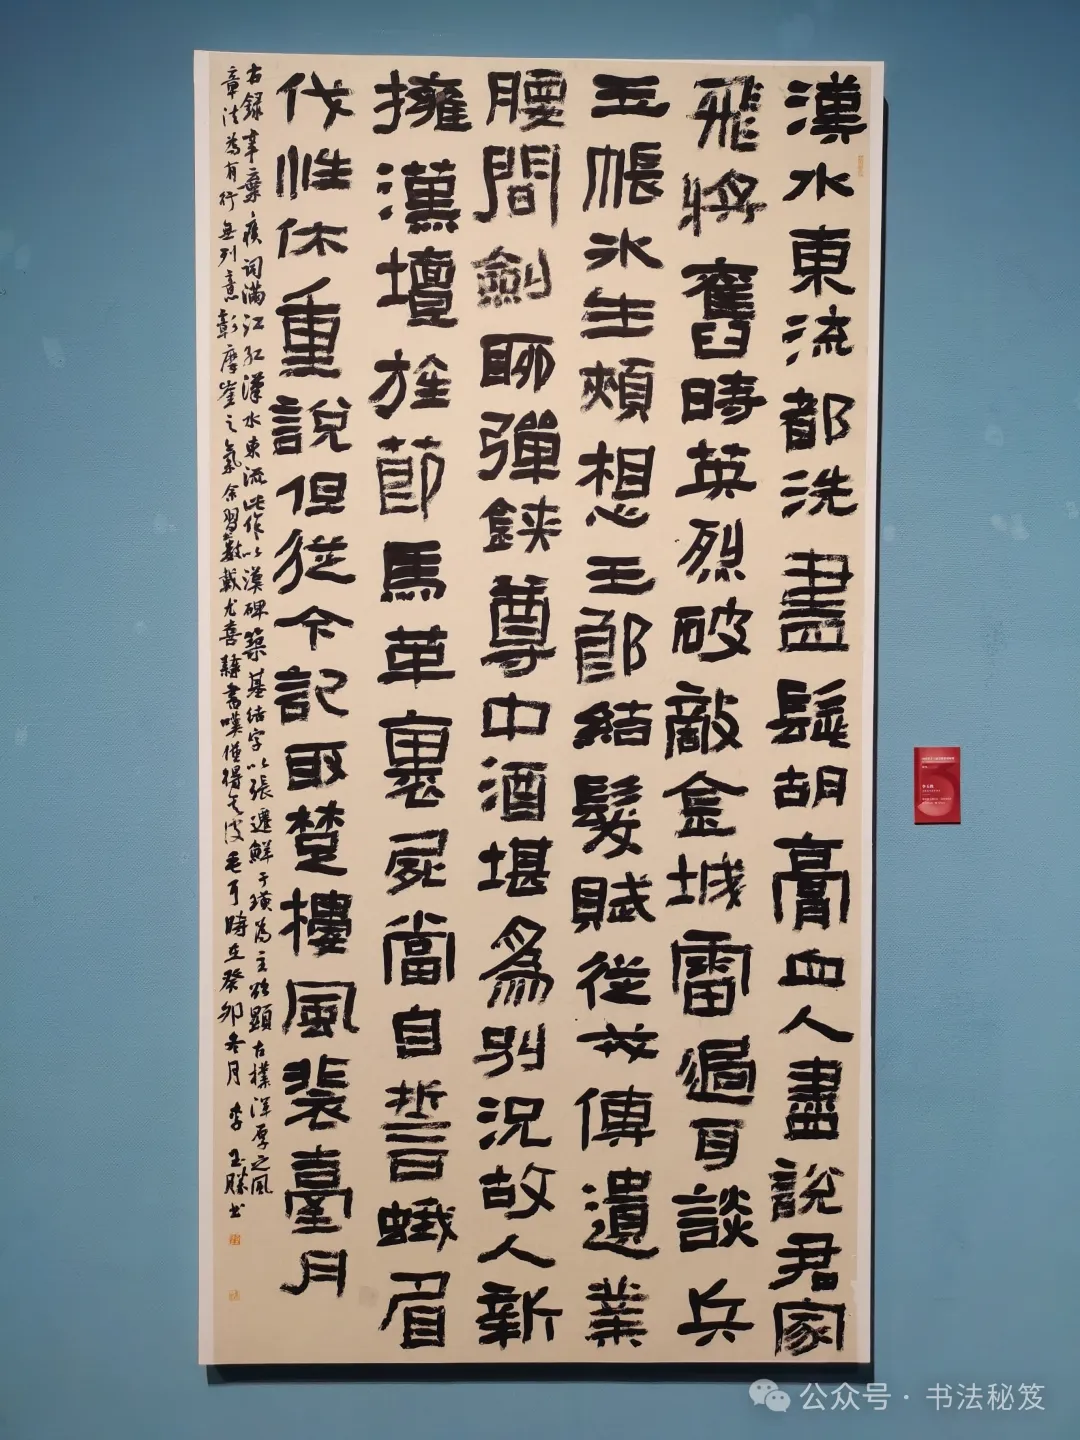 漢水東流都洗盡髭胡膏血人盡說君家
飛將舊時英烈破敵金城雷過耳談兵
玉帳冰生頰想王郎結髮賦從戎傳遺業
腰間劍聊彈鋏尊中酒堪為別況故人新
擁漢壇旌節馬革裹屍當自誓蛾眉
伐性休重說但從今記取楚樓風裴臺月
右錄辛棄疾詞滿江紅漢水東流此作以漢碑築基結字以張遷鮮于璜為主欲顯古樸渾厚之風
章法為有行無列意彰摩崖之氣余習數載尤喜隸書嘆僅得其皮毛耳時在癸卯冬月李玉勝书
公众号 · 书法秘笈